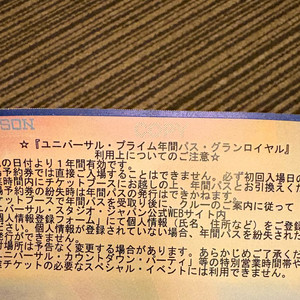 SON
☆『ユニバーサル・プライム年間パス・グランロイヤル』
利用上についてのご注意☆
の日付より１年間有効です。
予約券では直接ご入場することはできません。必ず初回入場日の
時間内にチケットブースにお越しの上、年間パスとお引換えくだ
予約券の紛失時は年間パスの発行はできかねます
ットブースで年間パスを受取り後に、クルーのご案内に従って
ーサル・スタジオ・ジャパン公式WEBサイト内
個人情報登録フォーム」にて、個人情報（氏名、住所など）をご登録
さい。個人情報が登録されていない場合、年間パスを紛失された
発行できません。
場所は予告なく変更する場合があります。あらかじめご了承くだ
ーサル・カウントダウン・パーティ」等の特別営業時間帯や
チケットの必要なスペシャル・イベントには利用できません。